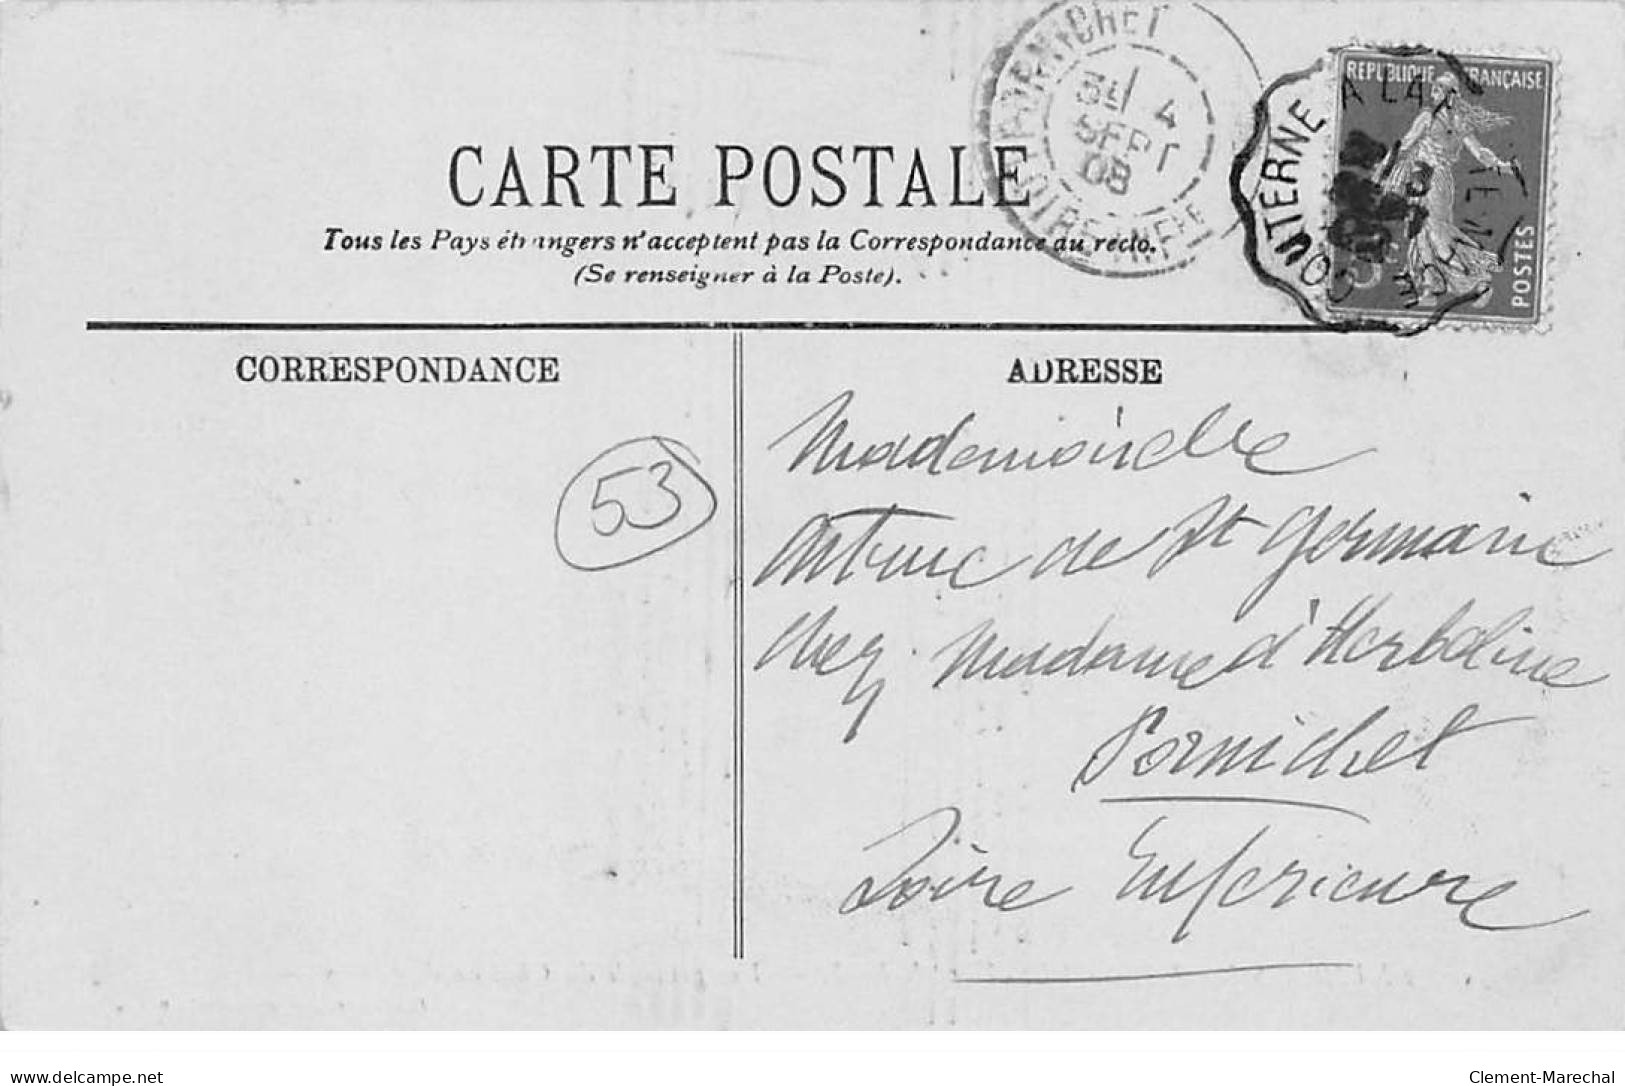 PORNICHET
4
SEPT
08
LOIRE-INFRE
COUTERNE A LA
REPUBLIQUE FRANÇAISE
POSTES
CARTE POSTALE
Tous les Pays étrangers n'acceptent pas la Correspondance au recto.
(Se renseigner à la Poste).
CORRESPONDANCE
ADRESSE
53
Mademoiselle
de St Germain
chez Madame d'Herbeline
Pornichet
Loire Inférieure
delcampe.net
Clement-Marechal